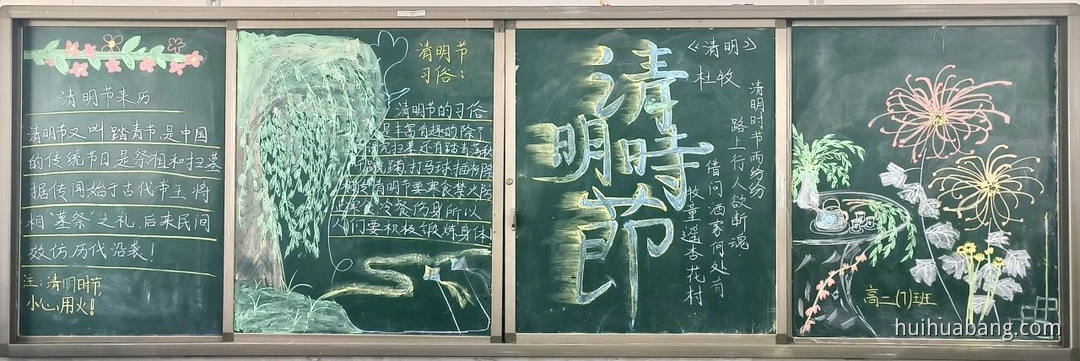 清明节来历
清明节又叫踏青节是中国
的传统节日是祭祖和扫墓
据传闻始于古代帝王将
相“墓祭”之礼,后来民间
效仿,历代沿袭!
注:清明时节,
小心用火!
清明节
习俗:
清明节的习俗
是丰富有趣的除了
扫墓还有踏青荡秋
打马球插柳
清明节要寒食禁火
寒食冷餐伤身所以
人们要积极锻炼身体
清
明时
节
《清明》
杜牧
清明时节雨纷纷
路上行人欲断魂
借问酒家何处有
牧童遥杏花村
高二(7)班
huihuabang.com